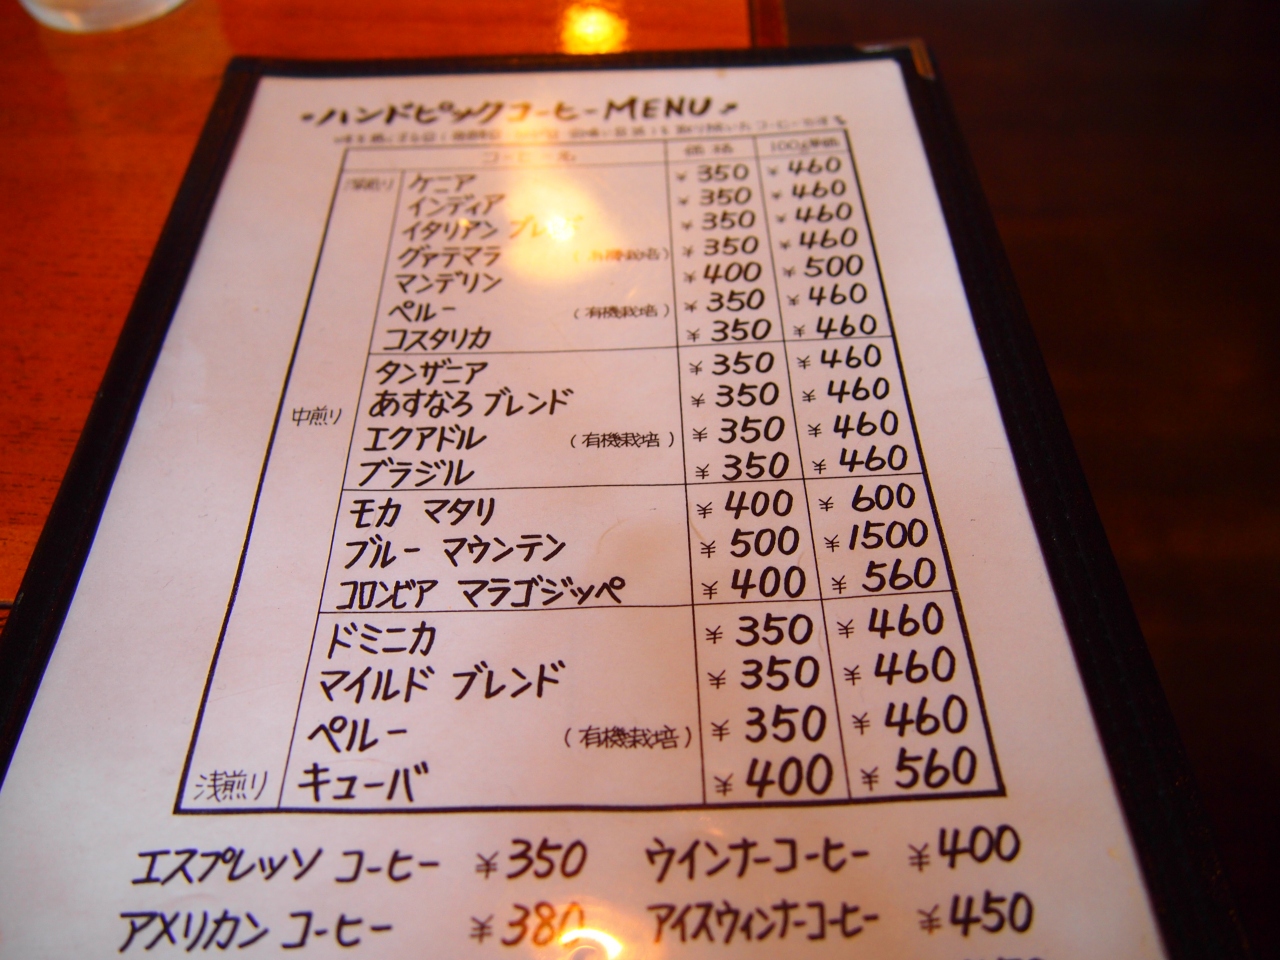 ハンドピックコーヒーMENU
コーヒー名 価格 100g単価
深煎り ケニア ¥350 ¥460
インディア ¥350 ¥460
イタリアン ブレンド ¥350 ¥460
グァテマラ (有機栽培) ¥350 ¥460
マンデリン ¥400 ¥500
ペルー (有機栽培) ¥350 ¥460
コスタリカ ¥350 ¥460
タンザニア ¥350 ¥460
中煎り あすなろ ブレンド ¥350 ¥460
エクアドル (有機栽培) ¥350 ¥460
ブラジル ¥350 ¥460
モカ マタリ ¥400 ¥600
ブルー マウンテン ¥500 ¥1500
コロンビア マラゴジッペ ¥400 ¥560
ドミニカ ¥350 ¥460
マイルド ブレンド ¥350 ¥460
ペルー (有機栽培) ¥350 ¥460
浅煎り キューバ ¥400 ¥560
エスプレッソ コーヒー ¥350 ウインナーコーヒー ¥400
アメリカン コーヒー ¥380 アイスウィンナーコーヒー ¥450